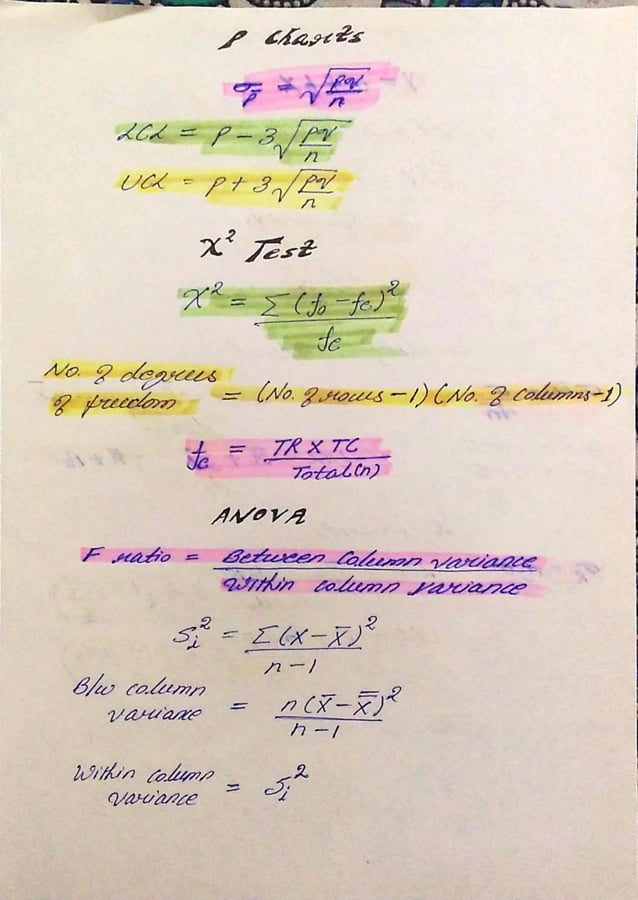 P Charts
σp̄ = √(pq/n)
LCL = P - 3√(pq/n)
UCL = P + 3√(pq/n)
χ² Test
χ² = Σ(fo - fe)²/fe
No. of degrees
of freedom = (No. of rows - 1) (No. of columns - 1)
fe = TR X TC/Total(n)
ANOVA
F ratio = Between Column variance/within column variance
Si² = Σ(x - x̄)²/n-1
B/w column
variance = n(x̄ - x̿)²/n-1
Within column
variance = Si²